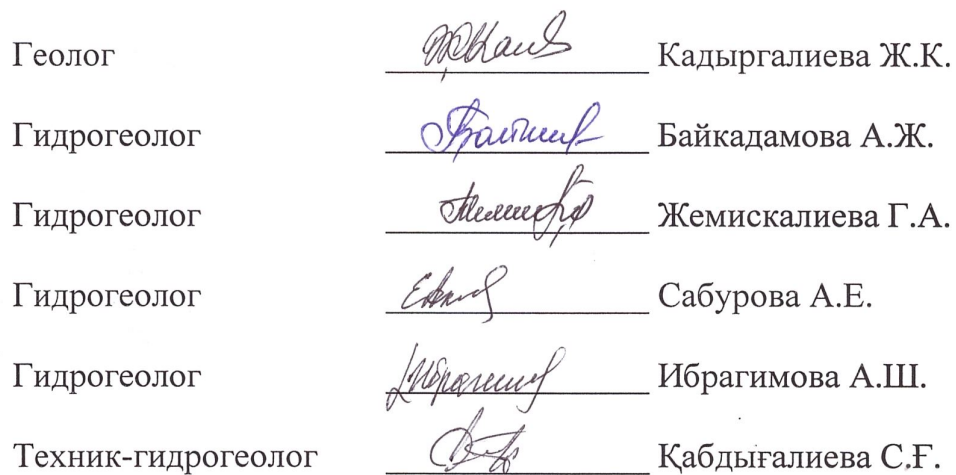 Геолог Кадыргалиева Ж.К.
Гидрогеолог Байкадамова А.Ж.
Гидрогеолог Жемискалиева Г.А.
Гидрогеолог Сабурова А.Е.
Гидрогеолог Ибрагимова А.Ш.
Техник-гидрогеолог Қабдығалиева С.Ғ.